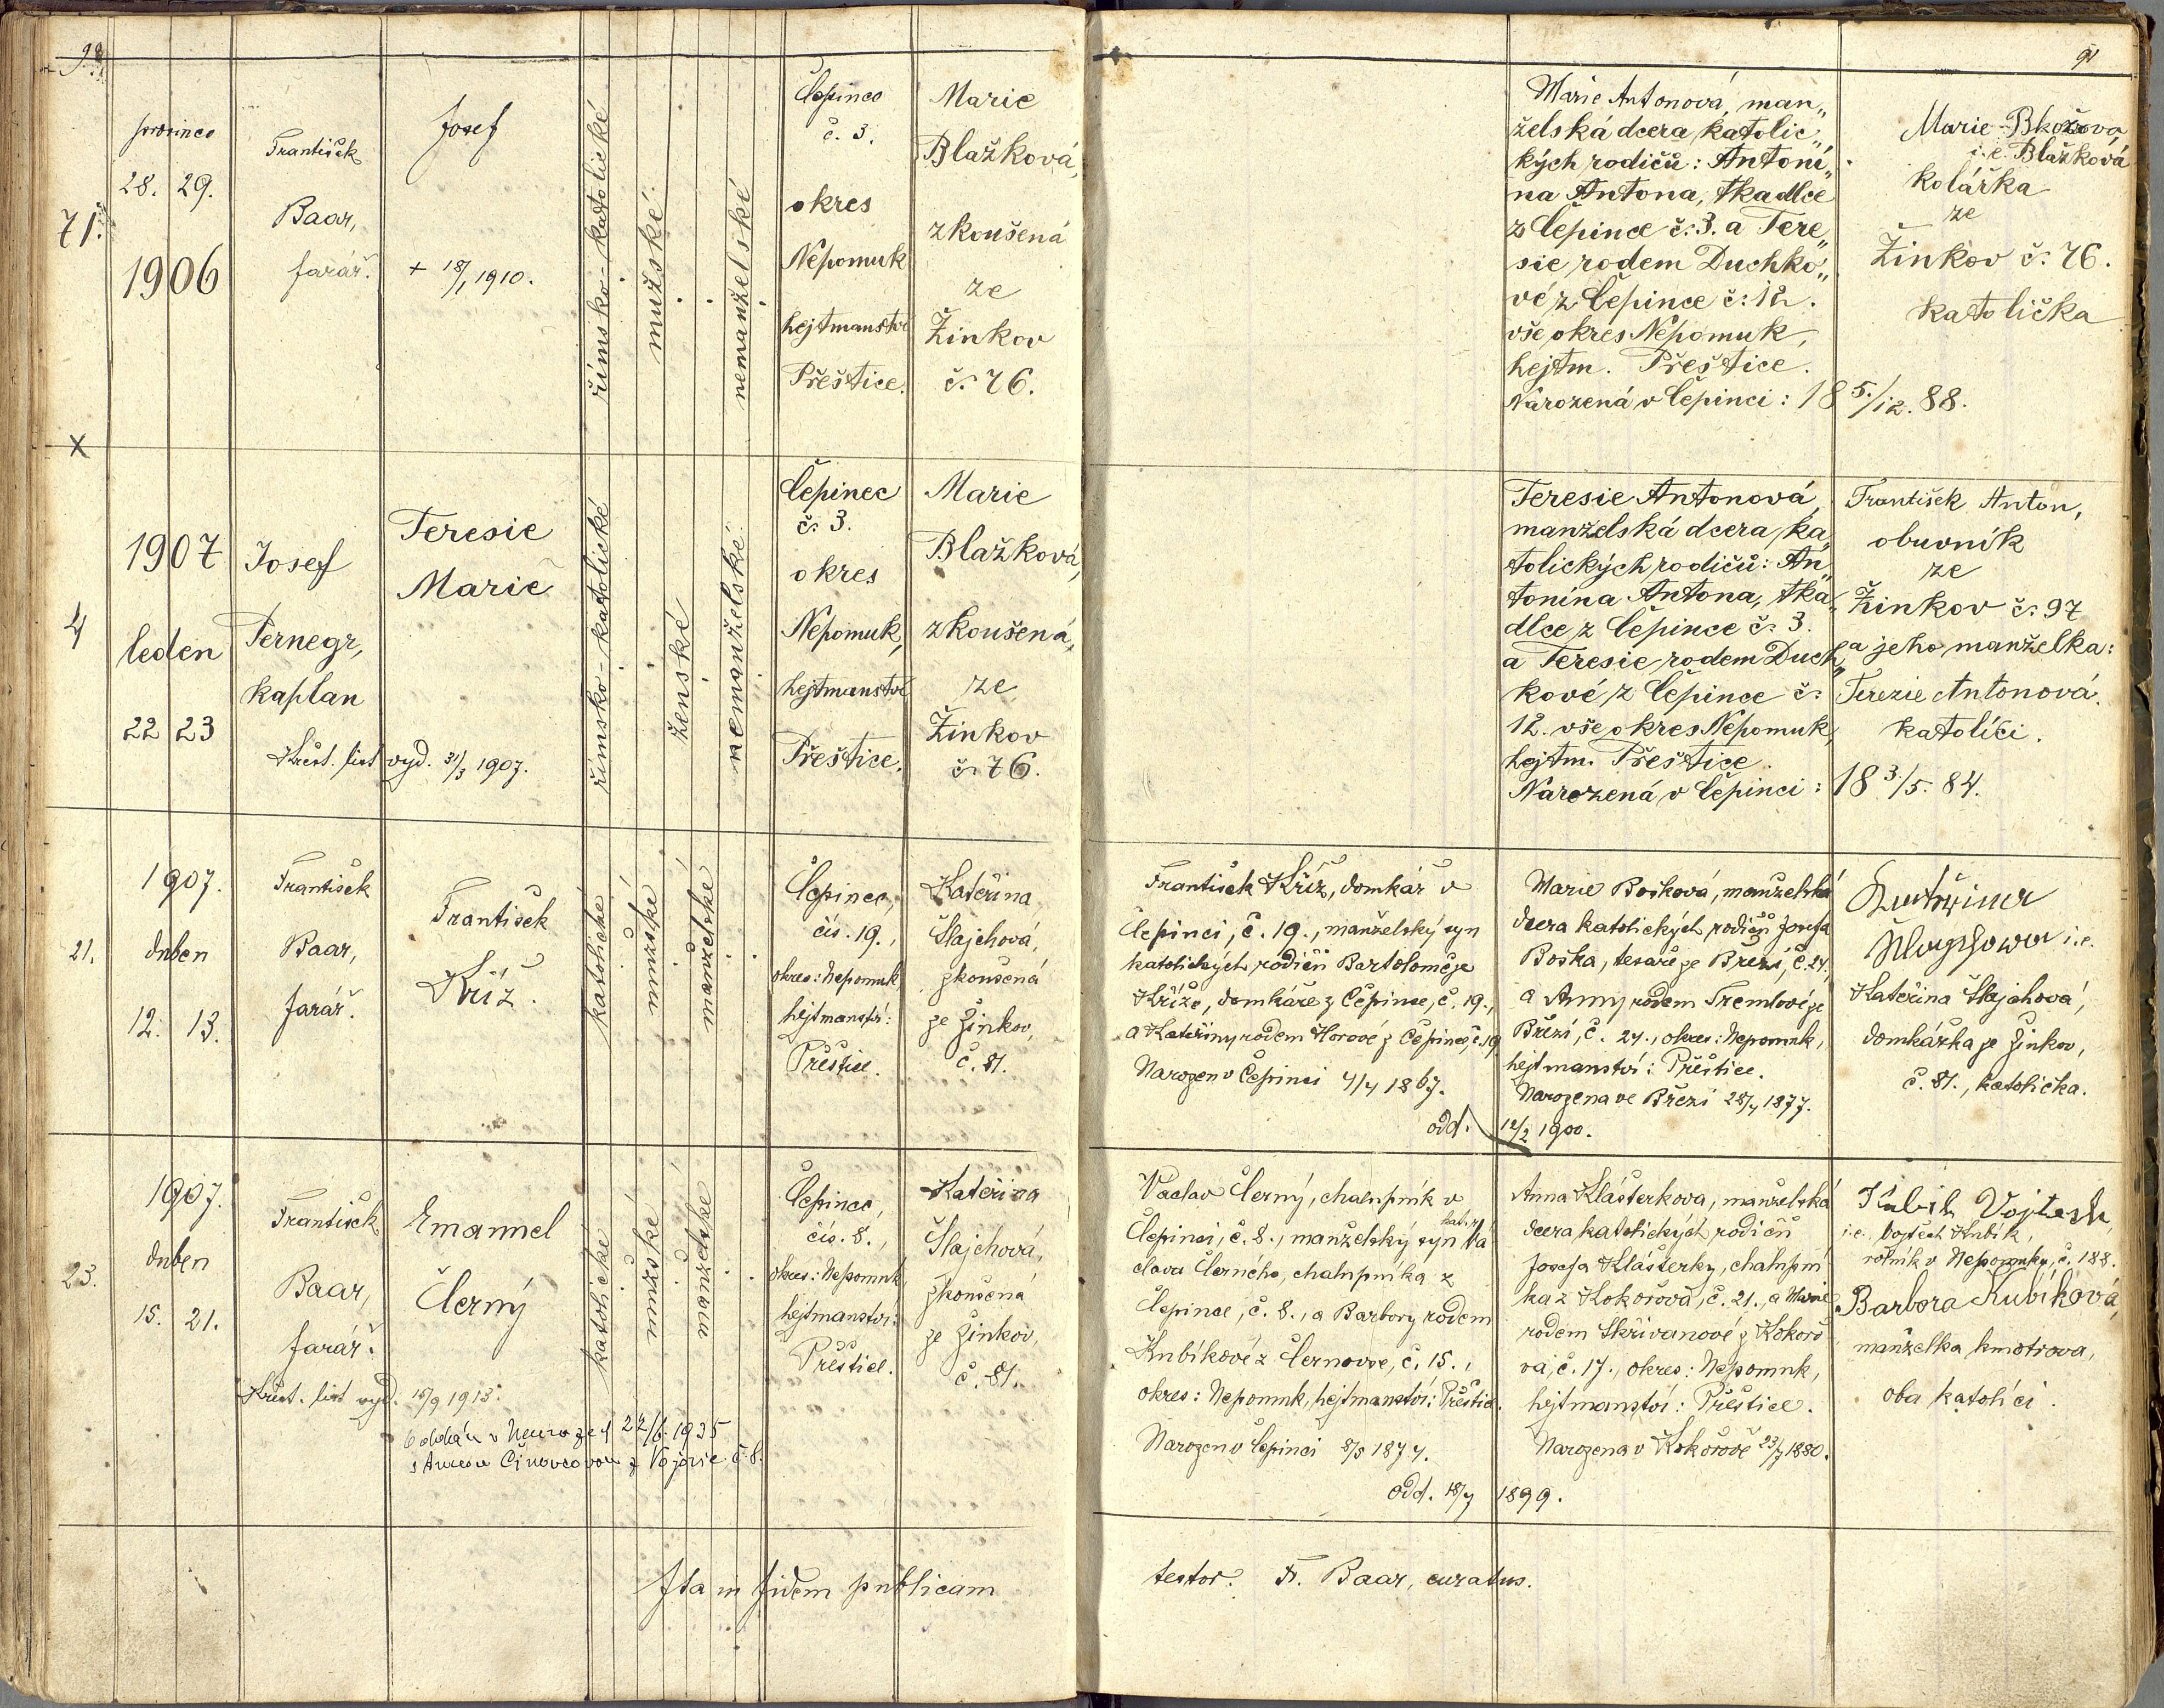 91
71.
prosinec
28. 29.
1906
František
Baar,
farář.
Josef
+ 18/1 1910.
římsko-katolické
mužské
nemanželské
Čepinec
č. 3.
okres
Nepomuk
hejtmanství
Přeštice.
Marie
Blažková,
zkoušená
ze
Žinkov
č. 76.
Marie Antonová, man„
želská dcera katolic„
kých rodičů: Antoní„
na Antona, tkadlce
z Čepince č. 3. a Tere„
sie rodem Duchko„
vé z Čepince č. 12.
vše okres Nepomuk,
hejtm. Přeštice.
Narozená v Čepinci: 18 5./12. 88.
Marie
i.e. Blažková
kolářka
ze
Žinkov č. 76.
katolička
X
4
1907
leden
22 23
Josef
Pernegr,
kaplan
Teresie
Marie
Křest. list vyd. 31/3 1907.
římsko-katolické
ženské
nemanželské
Čepinec
č. 3.
okres
Nepomuk,
hejtmanství
Přeštice.
Marie
Blažková,
zkoušená,
ze
Žinkov
č. 76.
Teresie Antonová,
manželská dcera ka„
tolických rodičů: An„
tonína Antona, tka„
dlce z Čepince č. 3.
a Teresie rodem Duch„
kové z Čepince č.
12. vše okres Nepomuk,
hejtm. Přeštice.
Narozená v Čepinci: 18 3./5. 84.
František Anton,
obuvník
ze
Žinkov č. 97
a jeho manželka:
Terezie Antonová.
katolíci.
21.
1907.
duben
12. 13.
František
Baar,
farář.
František
Kříž.
katolické
mužské
manželské
Čepinec,
čís. 19.,
okres: Nepomuk,
hejtmanství:
Přeštice.
Kateřina
Šlajchová,
zkoušená
ze Žinkov,
č. 81.
František Kříž, domkář v
Čepinci, č. 19., manželský syn
katolických rodičů Bartoloměje
Kříže, domkáře z Čepince, č. 19.,
a Kateřiny rodem Horové z Čepince, č. 19
Narozen v Čepinci 4/4 1867.
odd. 12/2 1900.
Marie Bošková, manželská
dcera katolických rodičů Josefa
Boška, tesaře ze Březí, č. 24.
a Anny rodem Tremlové ze
Březí, č. 24., okres: Nepomuk,
hejtmanství: Přeštice.
Narozena ve Březí 28/4 1877.
i.e.
Kateřina Šlajchová,
domkářka ze Žinkov,
č. 81., katolička.
23.
1907.
duben
15. 21.
František
Baar,
farář.
Emanuel
Černý
Křest. list vyd. 15/9 1913.
Oddán v 22/6. 1935
č. 8.
katolické
mužské
manželské
Čepinec,
čís. 8.,
okres: Nepomuk
hejtmanství:
Přeštice.
Kateřina
Šlajchová,
zkoušená
ze Žinkov,
č. 81.
Václav Černý, chalupník v
Čepinci, č. 8., manželský syn kat. r. Vá
clava Černého, chalupníka z
Čepince, č. 8., a Barbory rodem
Kubíkové z Černovse, č. 15.,
okres: Nepomuk, hejtmanství: Přeštice.
Narozen v Čepinci 8/8 1874.
odd. 18/7 1899.
Anna Klášterkova, manželská
dcera katolických rodičů
Josefa Klášterky, chalupní
ka z Kokořova, č. 21., a Marie
rodem Skřivanové z Kokořo
va, č. 17., okres: Nepomuk,
hejtmanství: Přeštice.
Narozena v Kokořově 23/7 1880.
Kubík Vojtech,
i.e. Vojtěch Kubík,
rolník v Nepomuku, č. 188.
Barbora Kubíková,
manželka kmotrova,
oba katolíci.
Ita in fidem publicam testor. Fr. Baar, curatus.